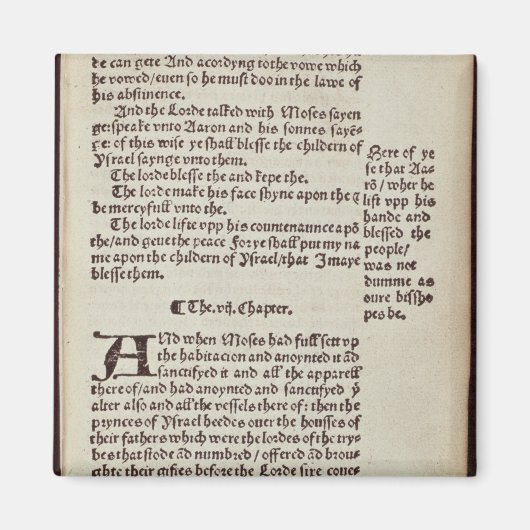 de can gete And acordyng to the vowe which
he vowed/even so he must doo in the lawe of
his abstinence.
And the Lorde talked with Moses sayen
ge: speake vnto Aaron and his sonnes sayẽ
ge: of this wise ye shall blesse the childern of
Ysrael saynge vnto them.
The lorde blesse the and kepe the.
The lorde make his face shyne apon the
be mercyfull vnto the.
The lorde lifte vpp his countenaunce apõ
the/and geve the peace For ye shall put my na
me apon the childern of Ysrael/that I maye
blesse them.
Here of ye
se that Aa-
rõ/wher he
lift vpp his
hande and
blessed the
people/
was not
dumme as
oure bissho
pes be.
¶ The .vij. Chapter.
ANd when Moses had full sett vp
the habitacion and anoynted it ãd
sanctifyed it and all the apparell
there of/and had anoynted and sanctifyed ẏ
alter also and all the vessels there of: then the
prynces of Ysrael heedes over the housses of
their fathers which were the lordes of the try-
bes that stode ãd numbred/offered ãd brou-
ghte their giftes before the Lorde sixe coue-